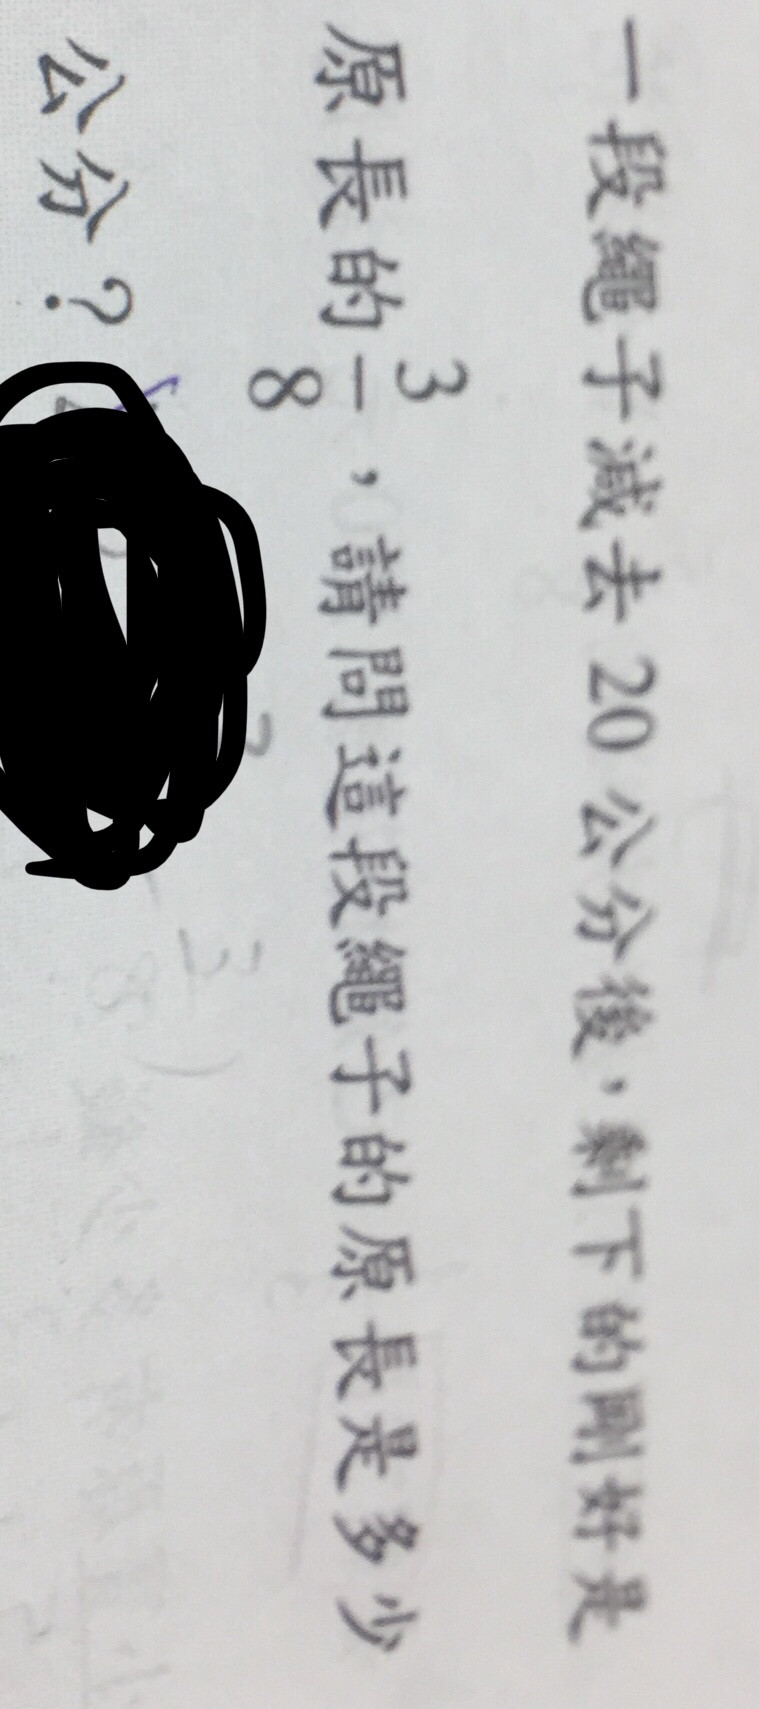 一段繩子減去20公分後，剩下的剛好是
原長的3/8，請問這段繩子的原長是多少
公分？